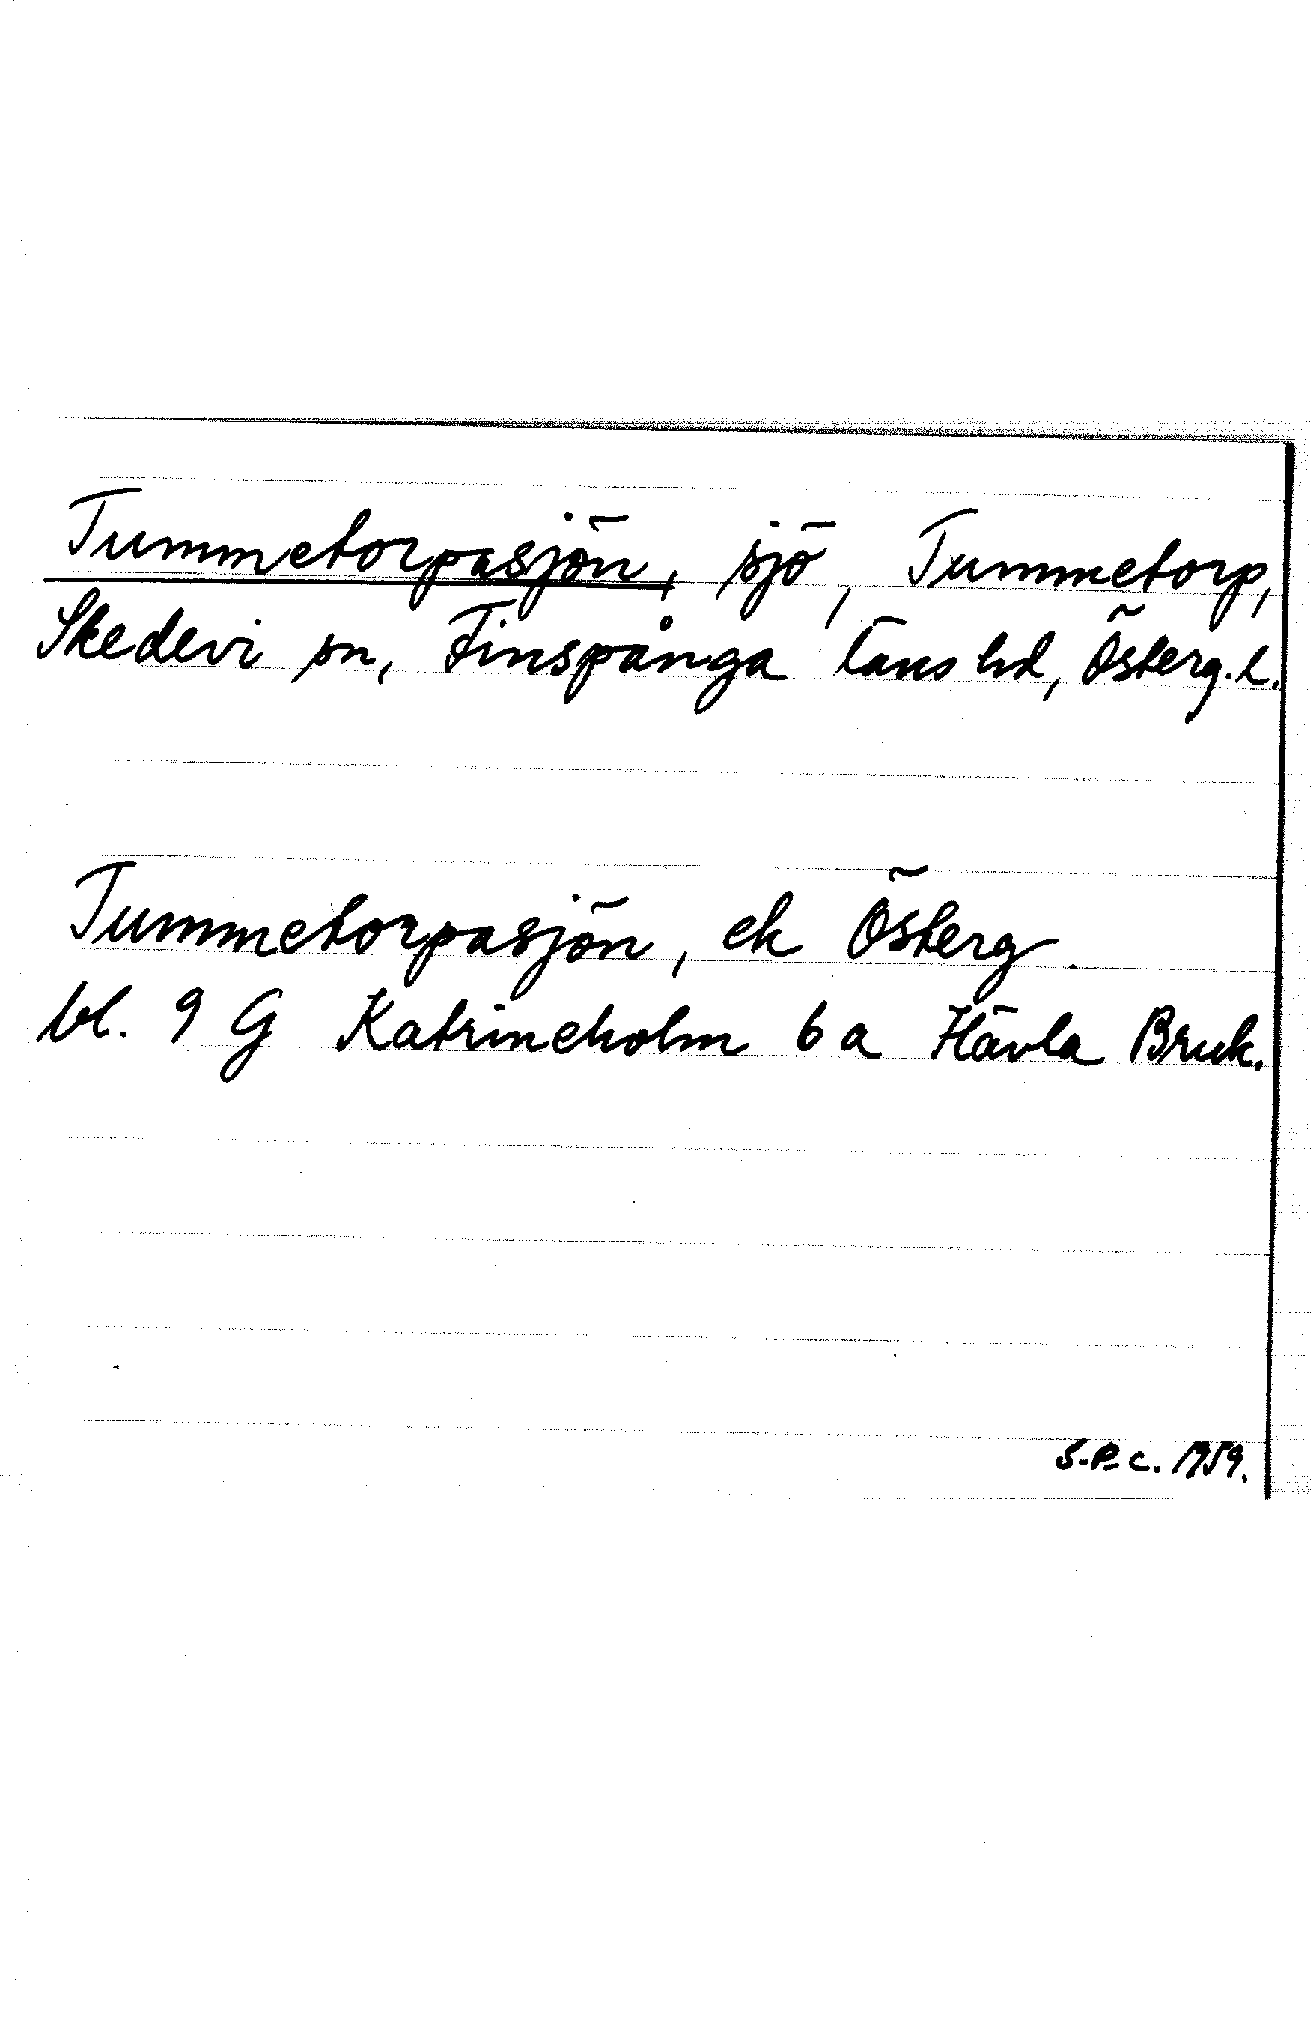 Tummetorpasjön, sjö, Tummetorp,
Skedevi sn, Finspånga läns hd, Österg.l.
Tummetorpasjön, ek Österg.
bl. 9 G Katrineholm 6 a Hävla Bruk.
S.P.C. 1959.